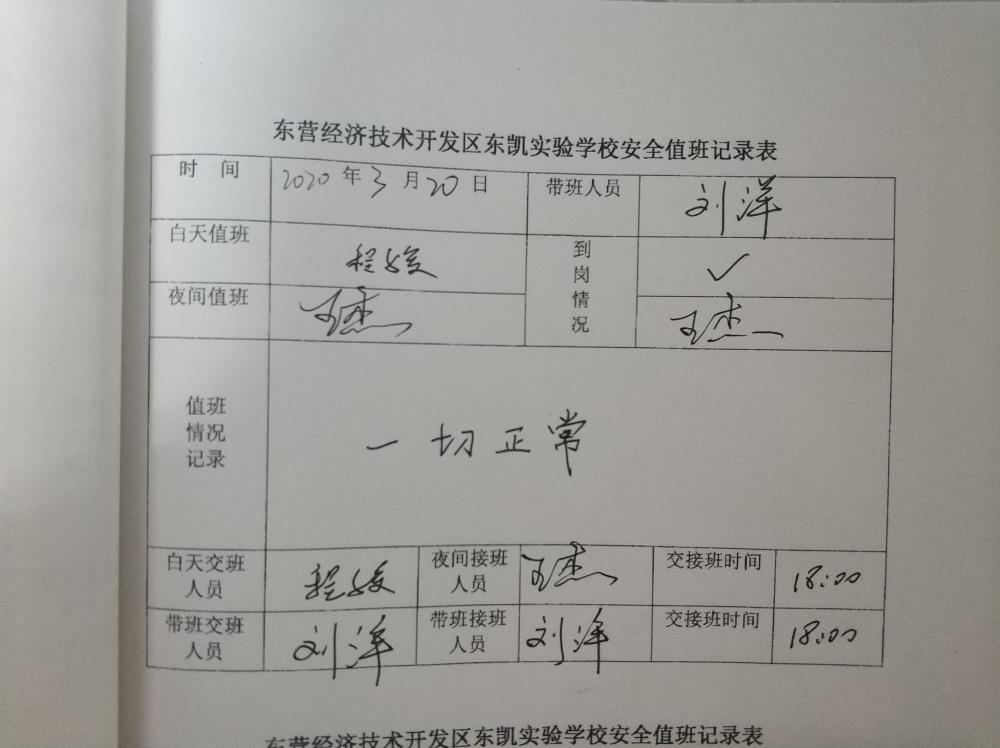 东营经济技术开发区东凯实验学校安全值班记录表
时 间 2020 年 3 月 20 日 带班人员 刘洋
白天值班 程姣 到岗情况 ✓
夜间值班 王杰 王杰
值班情况记录 一切正常
白天交班人员 程姣 夜间接班人员 王杰 交接班时间 18:00
带班交班人员 刘洋 带班接班人员 刘洋 交接班时间 18:00
东营经济技术开发区东凯实验学校安全值班记录表